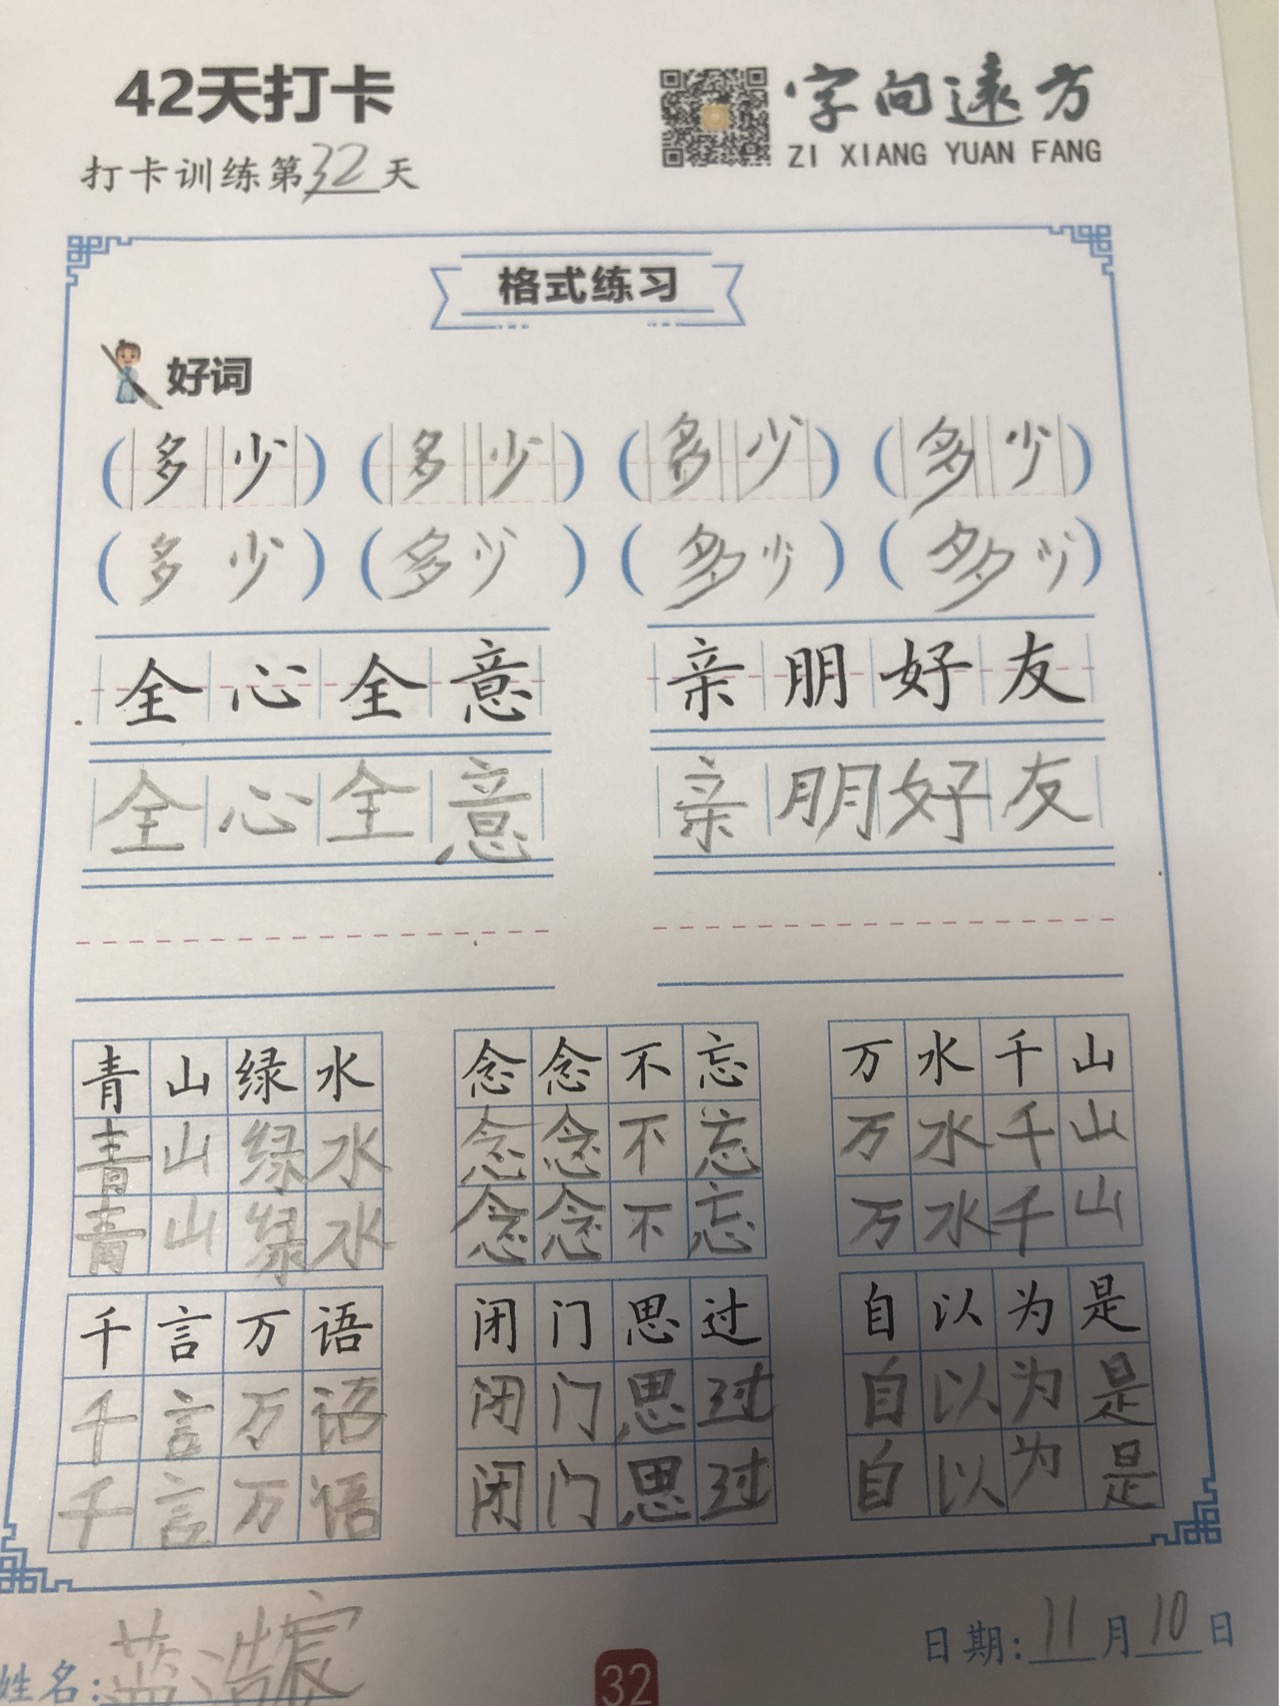 42天打卡
字向远方
ZI XIANG YUAN FANG
打卡训练第32天
格式练习
好词
(多少) (多少) (多少) (多少)
(多少) (多少) (多少) (多少)
全心全意 亲朋好友
全心全意 亲朋好友
青山绿水 念念不忘 万水千山
青山绿水 念念不忘 万水千山
青山绿水 念念不忘 万水千山
千言万语 闭门思过 自以为是
千言万语 闭门思过 自以为是
千言万语 闭门思过 自以为是
姓名:蓝浩宸
32
日期:11月10日